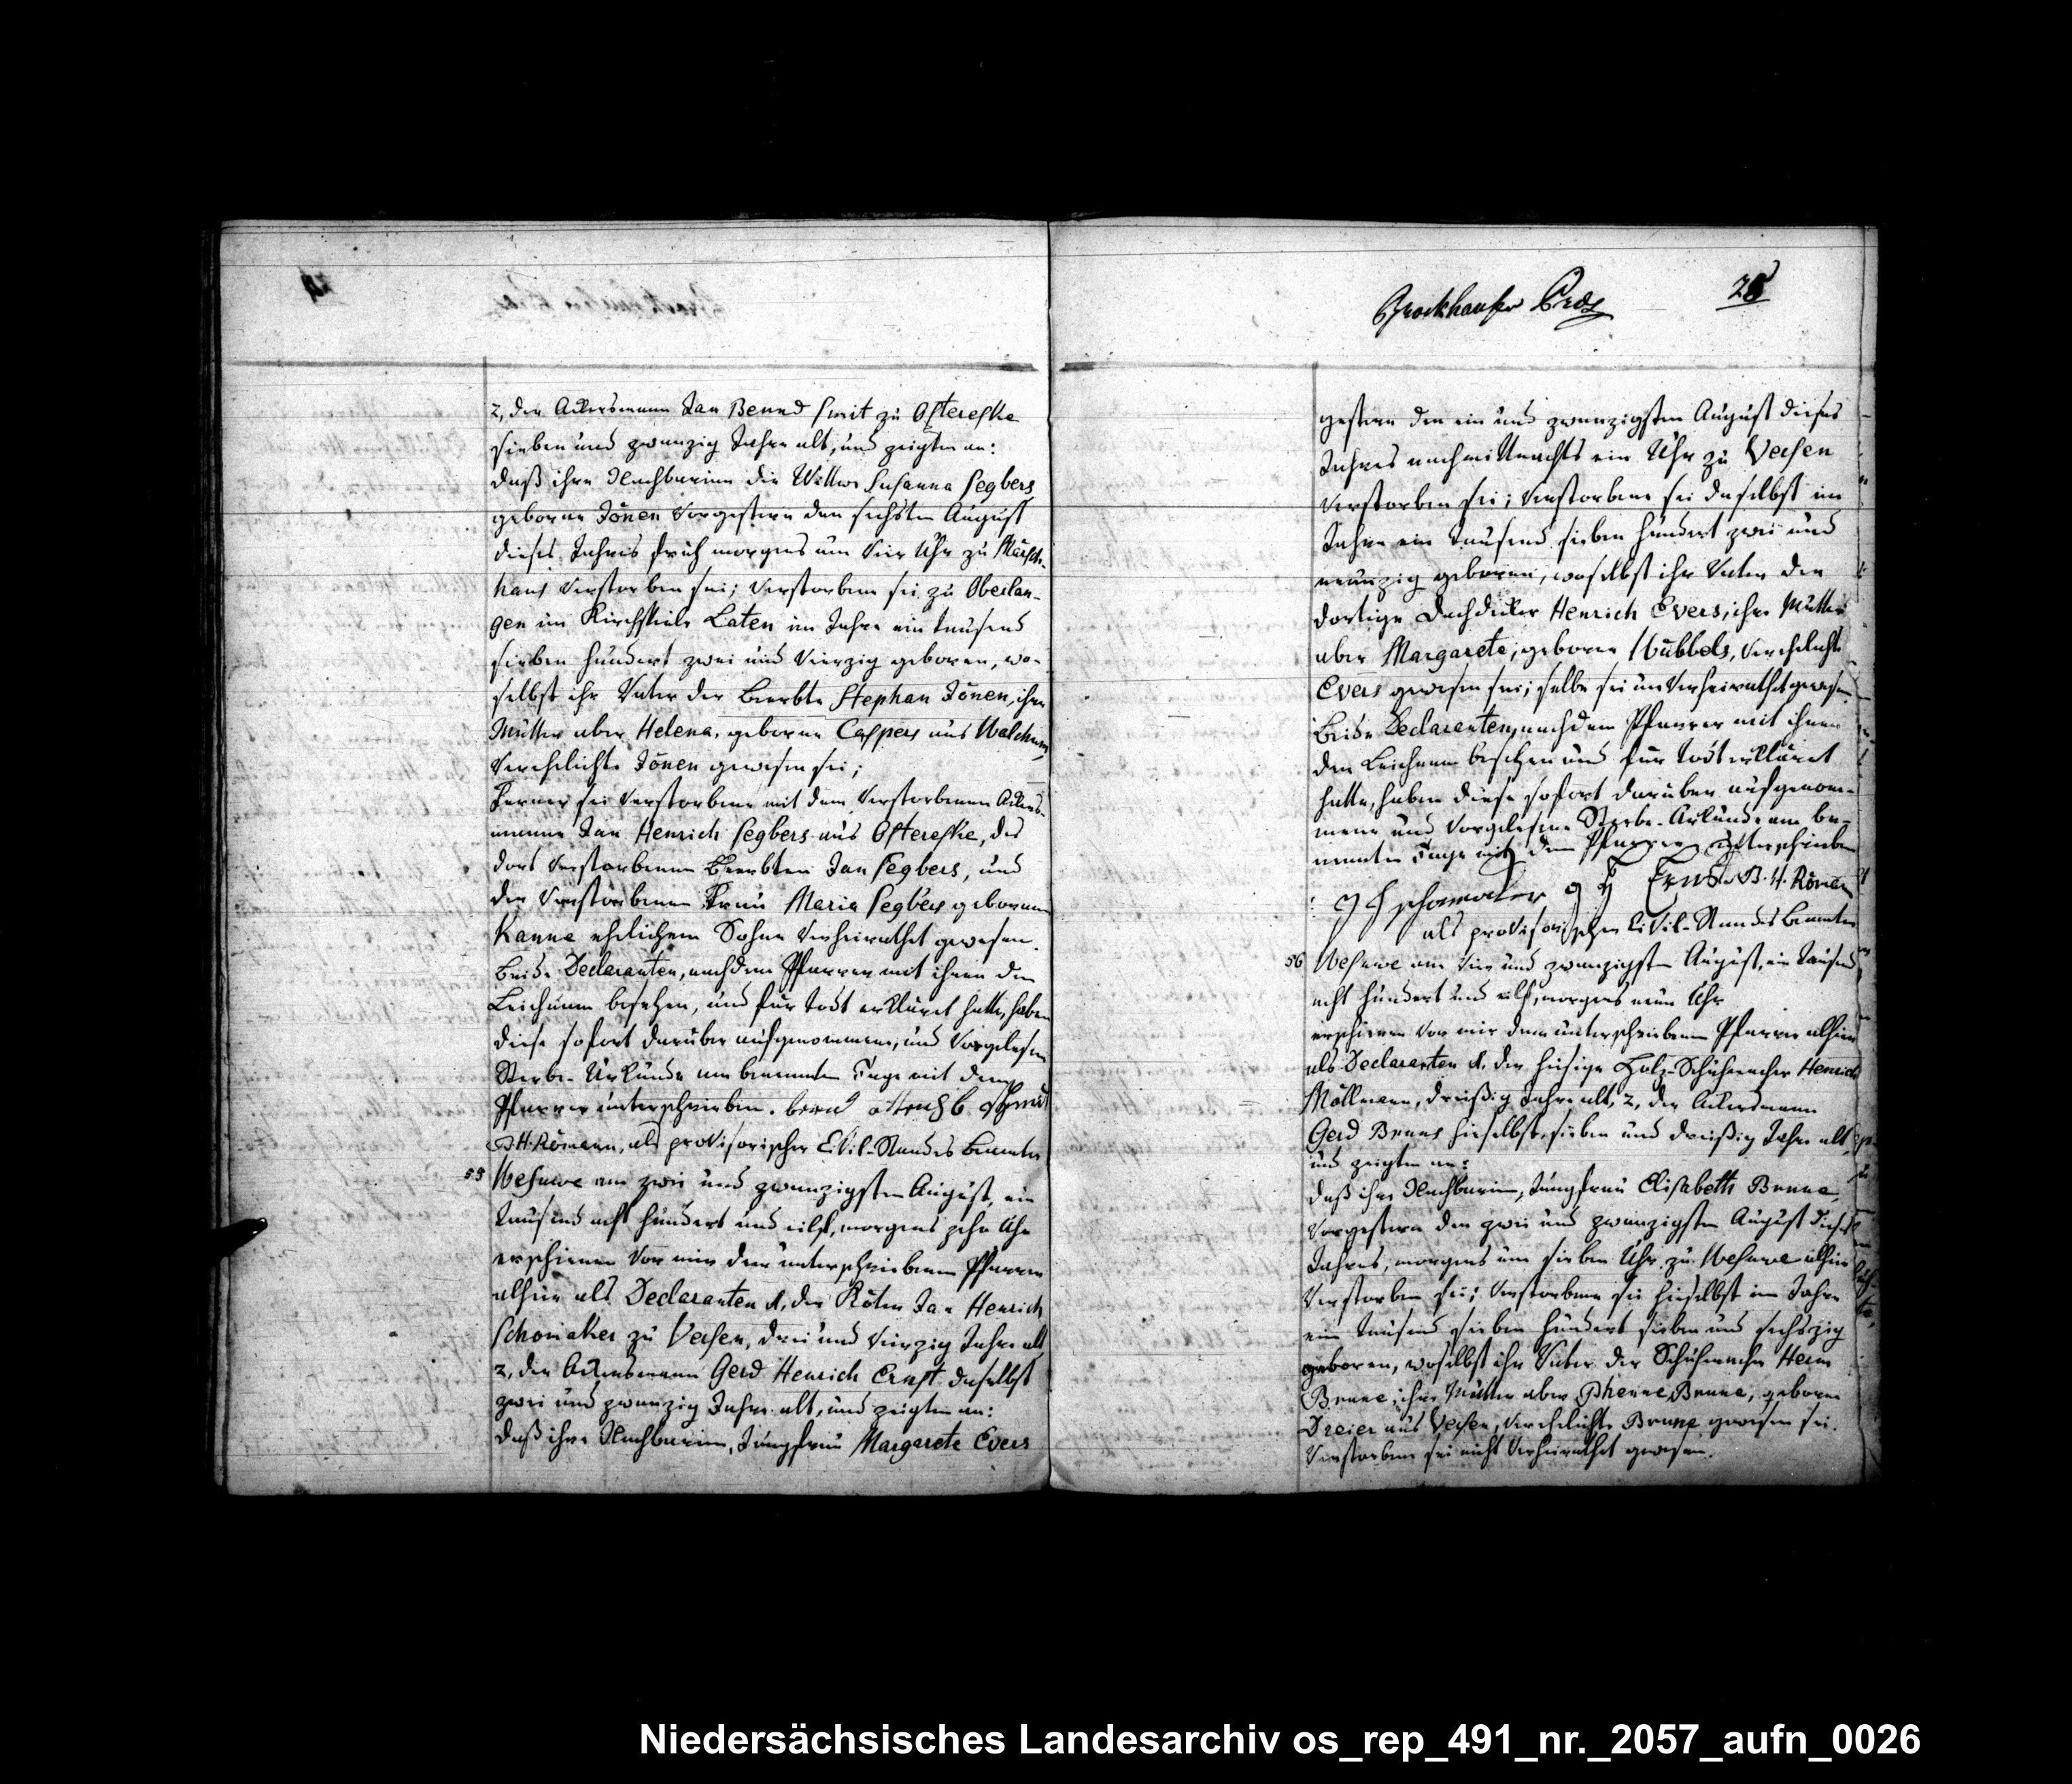 2, der Ackersmann Jan Bernd Smit zu Osteresche
sieben und zwanzig Jahre alt, und zeigten an:
daß ihre Nachbarinn die Wittwe Susanna Segbers
geborne Jönen vorgestern den sechsten August
dieses Jahres früh morgens um vier Uhr zu
haus verstorben sei; Verstorbene sei zu Oberlan-
gen im Kirchspiele Laten im Jahre ein tausend
sieben hundert zwei und vierzig geboren, wo-
selbst ihr Vater der Beerbte Stephan Jönen, ihre
Mutter aber Helena, geborne Caspers aus Walchum
verehelichte Jönen gewesen sei;
Ferner sei Verstorbene mit dem verstorbenen Ackers-
manne Jan Henrich Segbers aus Osteresche, des
dort verstorbenen Beerbten Jan Segbers, und
der verstorbenen Frau Maria Segbers gebornen
Kanne ehelichem Sohne verheirathet gewesen.
Beide Declaranten, nachdem Pfarrer mit ihnen den
Leichnam besehen, und für todt erkläret hatte, haben
diese sofort darüber aufgenommene, und vorgelesene
Sterbe-Urkunde am benannten Tage mit dem
Pfarrer unterschrieben. bernd
B. H. Römann, als provisorischer Civil-Standes Beamter
55 Wesuwe am zwei und zwanzigsten August, ein
tausend acht hundert und eilf, morgens zehn Uhr
erschienen vor mir dem unterschriebenen Pfarrer
alhier als Declaranten 1, der Köter Jan Henrich
Schomaker zu Versen, drei und vierzig Jahre alt
2, der Ackersmann Gerd Henrich Ernst daselbst
zwei und zwanzig Jahre alt, und zeigten an:
daß ihre Nachbarinn, Jungfrau Margarete Evers
28
gestern den ein und zwanzigsten August dieses
Jahres nachmitternachts ein Uhr zu Versen
verstorben sei; Verstorbene sei daselbst im
Jahre ein tausend sieben hundert zwei und
neunzig geboren, woselbst ihr Vater der
dortige Dachdicker Henrich Evers, ihre Mutter
aber Margarete, geborne Wübbels, verehelichte
Evers gewesen sei; selbe sei unverheirathet gewesen.
Beide Declaranten, nachdem Pfarrer mit ihnen
den Leichnam besehen und für todt erkläret
hatte, haben diese sofort darüber aufgenom-
mene und vorgelesene Sterbe-Urkunde am be-
nannten Tage mit dem Pfarrer unterschrieben
J H schomaker g H Ernst B. H. Römann
als provisorischer Civil-Standes Beamter
56 Wesuwe am vier und zwanzigsten August, ein tausend
acht hundert und eilf, morgens neun Uhr
erschienen vor mir dem unterschriebenen Pfarrer alhier
als Declaranten 1, der hiesige Holz-Schuhmacher Henrich
Möllmann, dreißig Jahre alt, 2, der Ackersmann
Gerd Bruns hieselbst, sieben und dreißig Jahre alt,
und zeigten an:
daß ihre Nachbarinn, Jungfrau Elisabeth Brune,
vorgestern den zwei und zwanzigsten August dieses
Jahres, morgens um sieben Uhr zu Wesuwe alhier
verstorben sei; Verstorbene sei hieselbst im Jahre
ein tausend sieben hundert sieben und sechszig
geboren, woselbst ihr Vater der Schuhmacher Herm
Brune, ihre Mutter aber Thenne Brune, geborne
Dreier aus Versen, verehelichte Brune gewesen sei.
Verstorbene sei nicht verheirathet gewesen.
Niedersächsisches Landesarchiv os_rep_491_nr._2057_aufn_0026